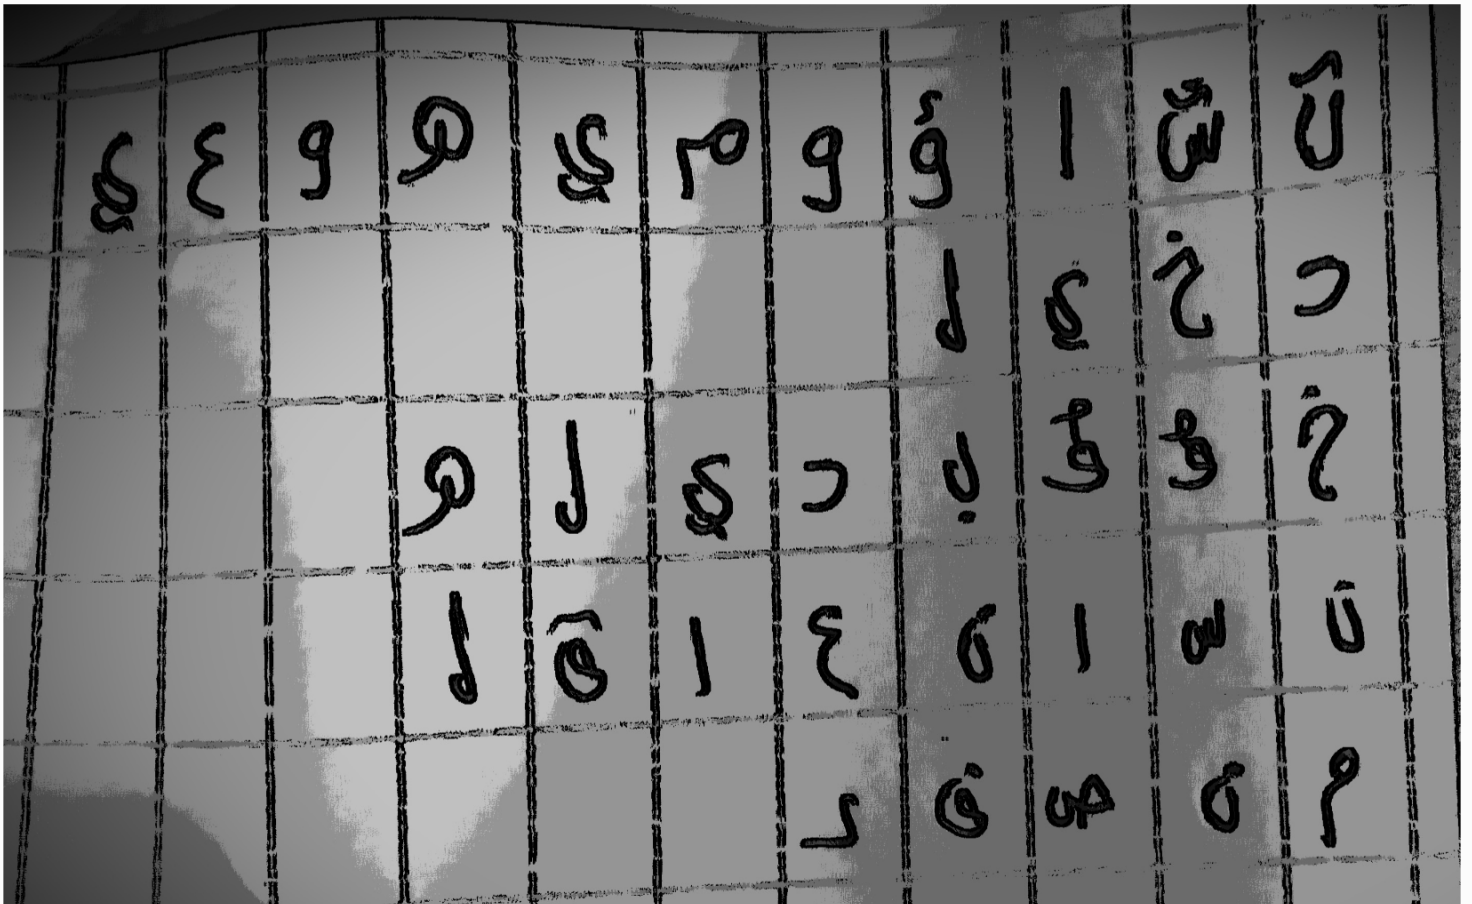 ت ش ا ؤ و م ي ه و ع ي
د خ ي ل
خ ؤ ؤ ب د ي ل ه
ن س ا ن ع ا ق ل
م ن ص ف ر